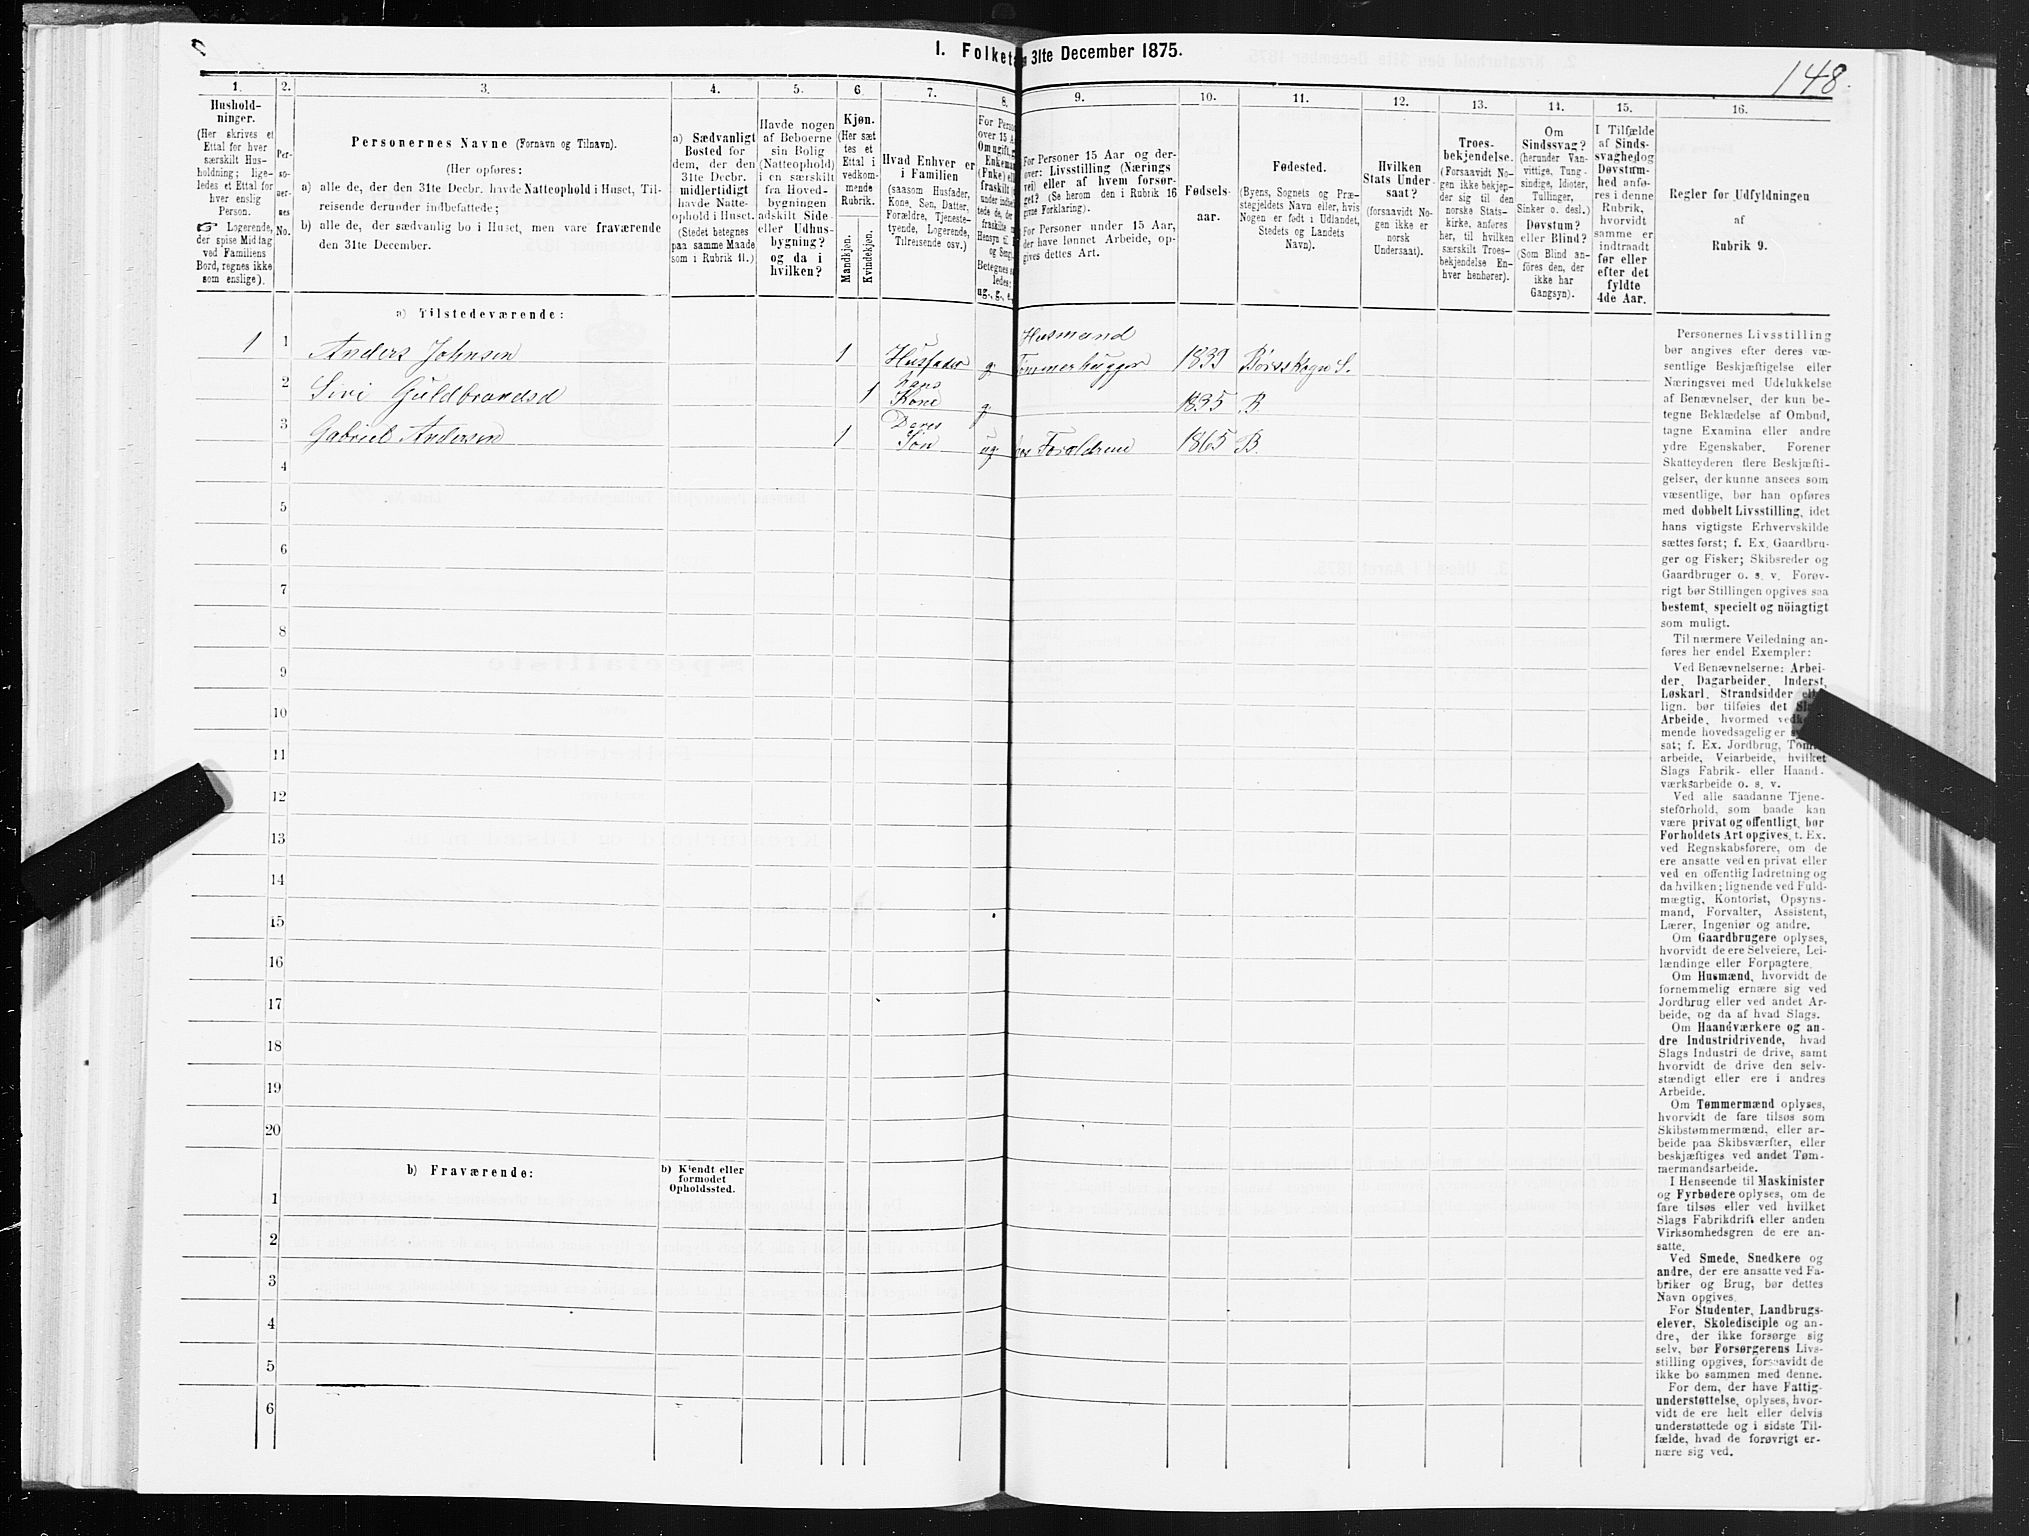 I. Folket
n 31te December 1875.
148.
1. 2. 3. 4. 5. 6 7. 8. 9. 10. 11. 12. 13. 14. 15. 16.
Hushold-
ninger.
(Her skrives et
Ettal for hver
særskilt Hus-
holdning; lige-
ledes et Ettal for
hver enslig
Person.
☞ Logerende,
der spise Middag
ved Familiens
Bord, regnes ikke
som enslige).
Per-
so-
ner-
nes
No.
Personernes Navne (Fornavn og Tilnavn).
(Her opføres:
a) alle de, der den 31te Decbr. havde Natteophold i Huset, Til-
reisende derunder indbefattede;
b) alle de, der sædvanlig bo i Huset, men vare fraværende
den 31te December.
a) Sædvanligt
Bosted for
dem, der den
31te Decbr.
midlertidigt
havde Natte-
ophold i Huset.
(Stedet betegnes
paa samme Maade
som i Rubrik 11.)
Havde nogen
af Beboerne
sin Bolig
(Natteophold)
i en særskilt
fra Hoved-
bygningen
adskilt Side-
eller Udhus-
bygning?
og da i
hvilken?
Kjøn.
(Her sæt
tes et
Ettal i
vedkom-
mende
Rubrik.
Mandkjøn.
Kvindekjøn.
Hvad Enhver er
i Familien
(saasom Husfader,
Kone, Søn, Datter,
Forældre, Tjeneste-
tyende, Logerende,
Tilreisende osv.)
For Perso
over 15 A
Om ugift, g
Enkema
(Enke) ell
fraskilt
under indbe
tede de, de
fraskilte
Hensyn til
og Seng
Betegnes s
ledes:
ug., g., e.,
For Personer 15 Aar og der-
over: Livsstilling (Nærings
vei) eller af hvem forsør-
get? (Se herom den i Rubrik 16
givne Forklaring).
For Personer under 15 Aar,
der have lønnet Arbeide, op-
gives dettes Art.
Fødsels-
aar.
Fødested.
(Byens, Sognets og Præ-
stegjeldets Navn eller, hvis
Nogen er født i Udlandet,
Stedets og Landets
Navn).
Hvilken
Stats Under
saat?
(forsaavidt No-
gen ikke er
norsk
Undersaat).
Troes-
bekjendelse.
(Forsaavidt No-
gen ikke bekjen-
der sig til den
norske Stats-
kirke, anføres
her, til hvilken
særskilt Troes-
bekjendelse En-
hver henhører).
Om
Sindssvag?
(herunder Van-
vittige, Tung-
sindige, Idioter,
Tullinger,
Sinker o. desl.)
Døvstum?
eller Blind?
(Som Blind an-
føres den, der
ikke har
Gangsyn).
I Tilfælde
af Sinds-
svaghed og
Døvstum-
hed anfø-
res i denne
Rubrik,
hvorvidt
samme er
indtraadt
før eller
efter det
fyldte
4de Aar.
Regler for Udfyldningen
af
Rubrik 9.
a) Tilstedeværende:
1 1 Anders Johnsen 1 Husfader g. Husmand
Tømmerhugger 1839 Børsskogn S.
2 Siri Guldbrandsd 1 hans
Kone g. 1835 B.
3 Gabriel Andersen 1 Deres
Søn ug. hos Forældrene 1865 B.
4
5
6
7
8
9
10
11
12
13
14
15
16
17
18
19
20
b) Fraværende:
b) Kjendt eller
formodet
Opholdssted.
1
2
3
4
5
6
Personernes Livsstilling
bør angives efter deres væ-
sentlige Beskjæftigelse eller
Næringsvei med Udelukkelse
af Benævnelser, der kun be-
tegne Beklædelse af Ombud,
tagne Examina eller andre
ydre Egenskaber. Forener
Skatteyderen flere Beskjæfti-
gelser, der kunne ansees som
væsentlige, bør han opføres
med dobbelt Livsstilling, idet
hans vigtigste Erhvervskilde
sættes først; f. Ex. Gaardbru-
ger og Fisker; Skibsreder og
Gaardbruger o. s. v. Forøv-
rigt bør Stillingen opgives saa
bestemt, specielt og nöiagtigt
som muligt.
Til nærmere Veiledning an-
føres her endel Exempler:
Ved Benævnelserne: Arbei-
der, Dagarbeider, Inderst,
Løskarl, Strandsidder
lign. bør tilføies det
Arbeide, hvormed
mende hovedsagelig er
sat; f. Ex. Jordbrug,
arbeide, Veiarbeide, hvilket
Slags Fabrik- eller Haand-
værksarbeide o. s. v.
Ved alle saadanne Tjene-
steforhold, som baade kan
være privat og offentligt, bør
Forholdets Art opgives, t. Ex.
ved Regnskabsførere, om de
ere ansatte ved en privat eller
ved en offentlig Indretning og
da hvilken; lignende ved Fuld-
mægtig, Kontorist, Opsyns-
mand, Forvalter, Assistent,
Lærer, Ingeniør og andre.
Om Gaardbrugere oplyses,
hvorvidt de ere Selveiere, Lei-
lændinge eller Forpagtere.
Om Husmænd, hvorvidt de
fornemmelig ernære sig ved
Jordbrug eller ved andet Ar-
beide, og da af hvad Slags.
Om Haandværkere og an-
dre Industridrivende, hvad
Slags Industri de drive, samt
hvorvidt de drive den selv-
stændigt eller ere i andres
Arbeide.
Om Tømmermænd oplyses,
hvorvidt de fare tilsøs som
Skibstømmermænd, eller ar-
beide paa Skibsværfter, eller
beskjæftiges ved andet Tøm-
mermandsarbeide.
I Henseende til Maskinister
og Fyrbødere oplyses, om de
fare tilsøs eller ved hvilket
Slags Fabrikdrift eller anden
Virksomhedsgren de ere an-
satte.
Ved Smede, Snedkere og
andre, der ere ansatte ved Fa-
briker og Brug, bør dettes
Navn opgives.
For Studenter, Landbrugs-
elever, Skoledisciple og an-
dre, der ikke forsørge sig
selv, bør Forsørgerens Livs-
stilling opgives, forsaavidt de
ikke bo sammen med denne.
For dem, der have Fattig-
understøttelse, oplyses, hvor-
vidt de ere helt eller delvis
understøttede og i sidste Til-
fælde, hvad de forøvrigt er-
nære sig ved.